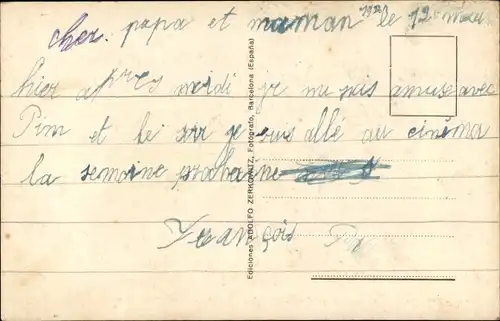 cher papa et maman le 12 mai
1921
hier apres midi je mi suis amusé avec
Pim et le soir je suis allé au cinéma
la semaine prochaine
François
Ediciones ADOLFO ZERKOWITZ, Fotógrafo, Barcelona (España)